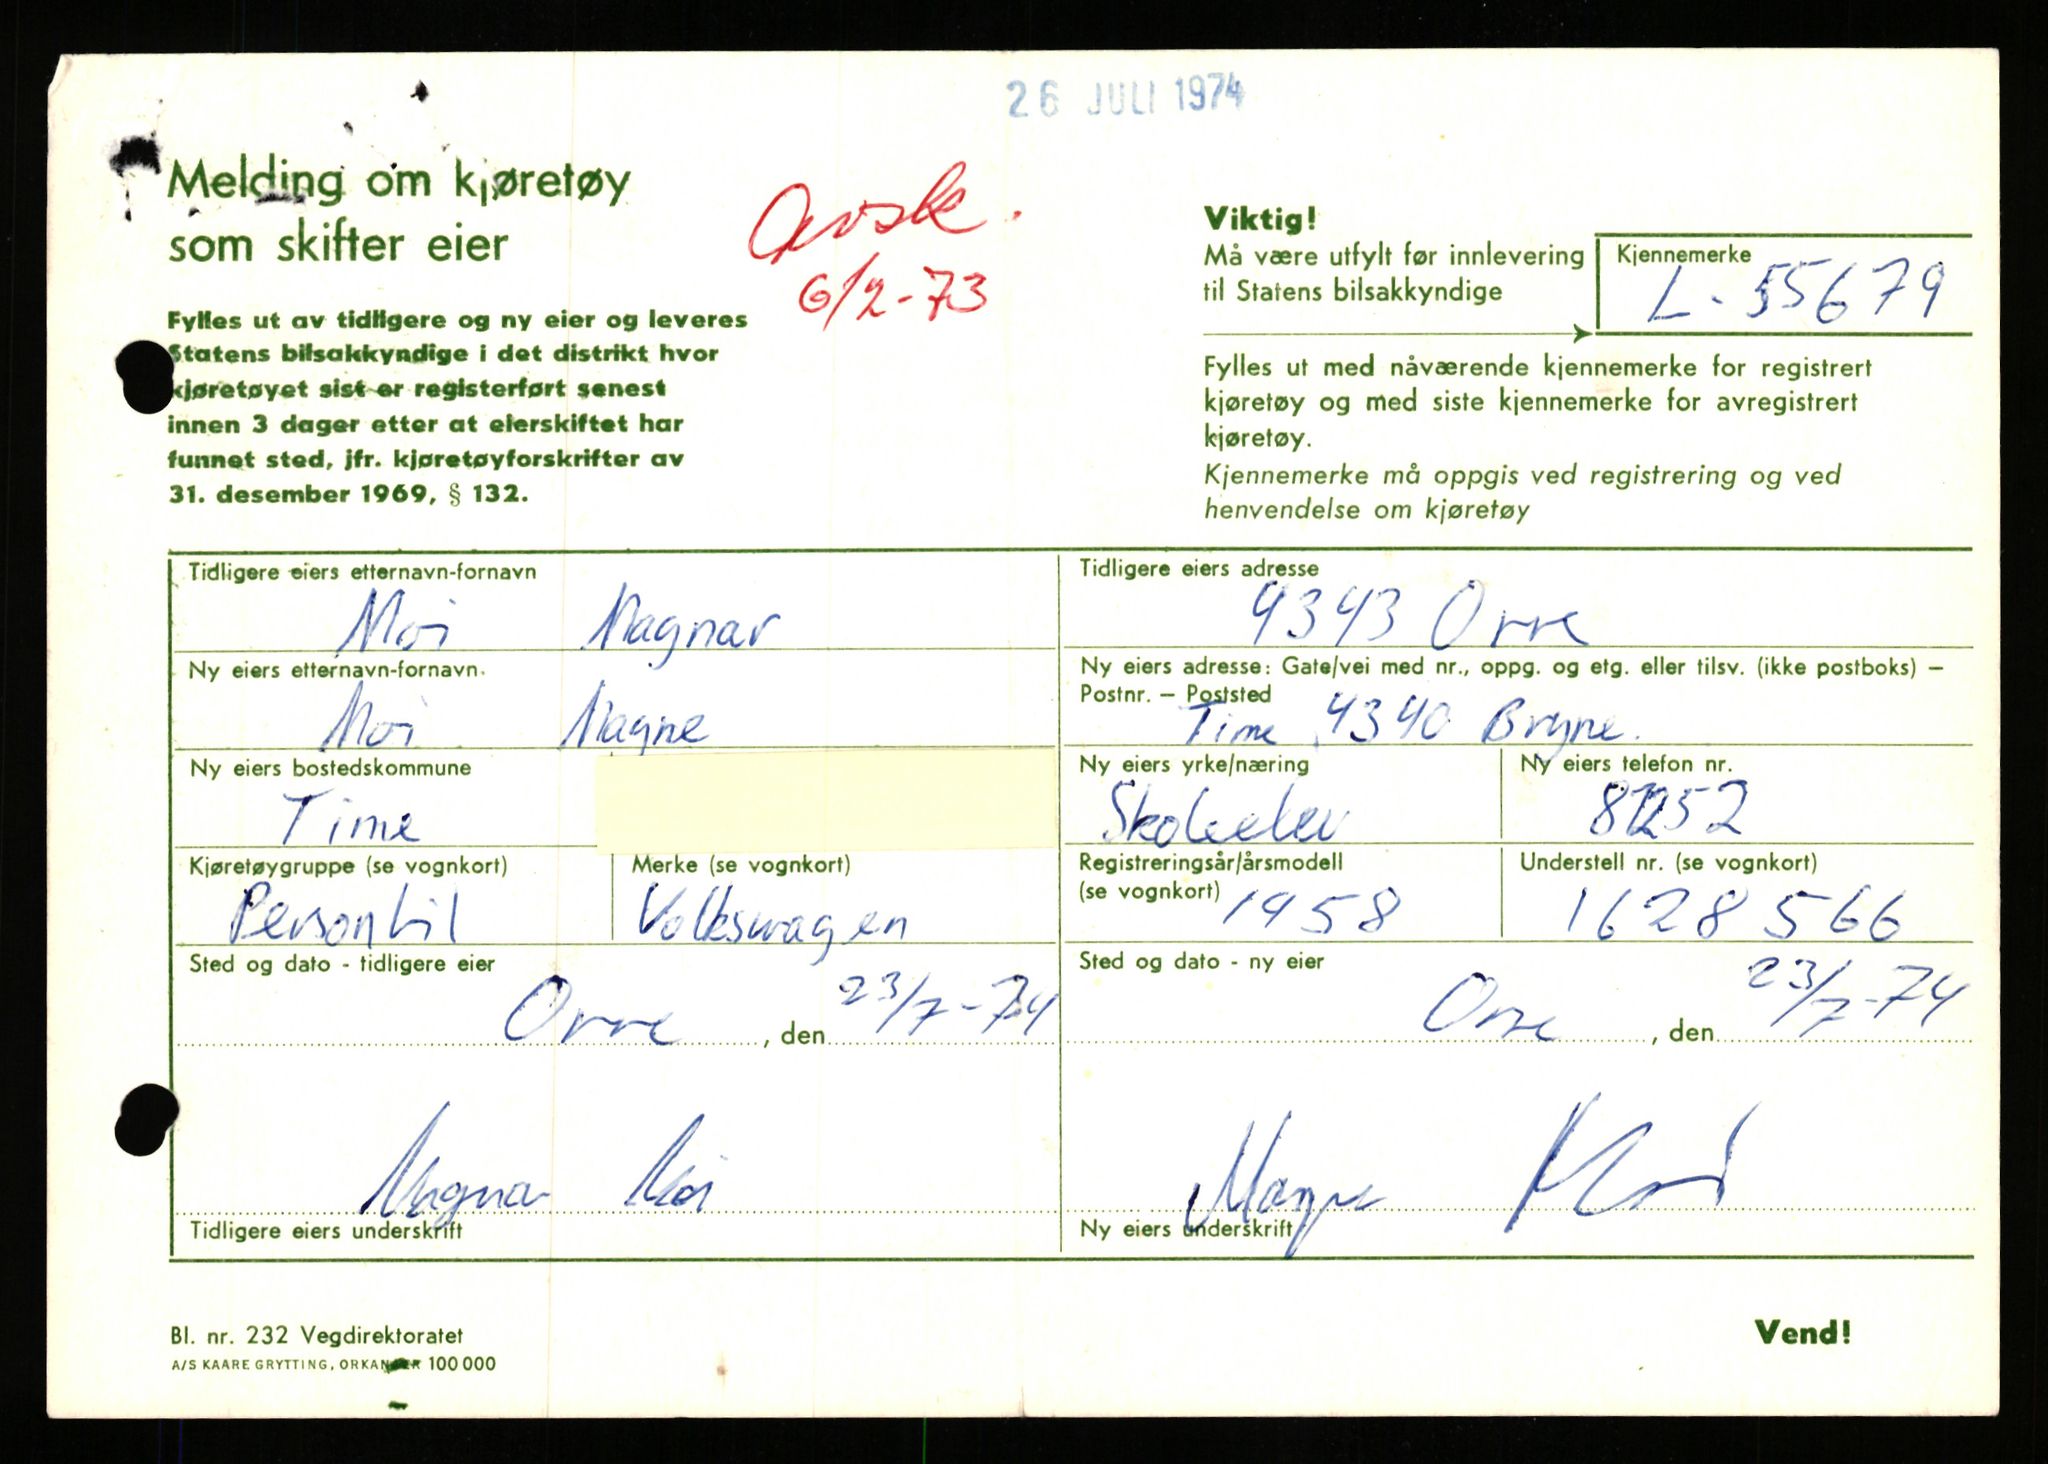 26 JULI 1974
Melding om kjøretøy
som skifter eier
Avsk.
6/2-73
Fylles ut av tidligere og ny eier og leveres
Statens bilsakkyndige i det distrikt hvor
kjøretøyet sist er registerført senest
innen 3 dager etter at eierskiftet har
funnet sted, jfr. kjøretøyforskrifter av
31. desember 1969, § 132.
Viktig!
Må være utfylt før innlevering
til Statens bilsakkyndige
Kjennemerke
L-55679
Fylles ut med nåværende kjennemerke for registrert
kjøretøy og med siste kjennemerke for avregistrert
kjøretøy.
Kjennemerke må oppgis ved registrering og ved
henvendelse om kjøretøy
Tidligere eiers etternavn-fornavn
Moi Magnar
Tidligere eiers adresse
4343 Orre
Ny eiers etternavn-fornavn.
Moi Magne
Ny eiers adresse: Gate/vei med nr., oppg. og etg. eller tilsv. (ikke postboks) –
Postnr. – Poststed
Time 4340 Bryne.
Ny eiers bostedskommune
Time
Ny eiers yrke/næring
Skoleelev
Ny eiers telefon nr.
Kjøretøygruppe (se vognkort)
Personbil
Merke (se vognkort)
Volkswagen
Registreringsår/årsmodell
(se vognkort)
1958
Understell nr. (se vognkort)
1628566
Sted og dato - tidligere eier
Orre, den 23/7-74
Sted og dato - ny eier
Orre, den 23/7-74
Magnar Moi
Tidligere eiers underskrift
Magne Moi
Ny eiers underskrift
Bl. nr. 232 Vegdirektoratet
A/S KAARE GRYTTING, ORKANGER 100 000
Vend!